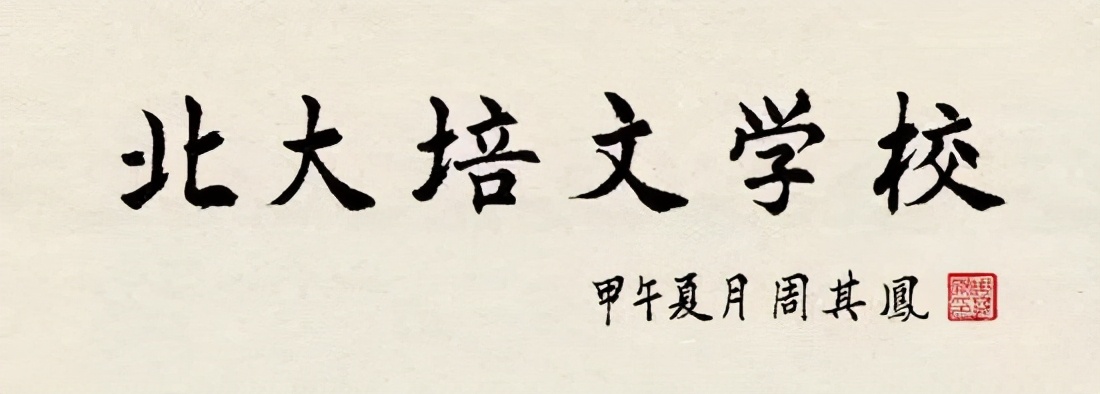 北大培文学校
甲午夏月周其鳳